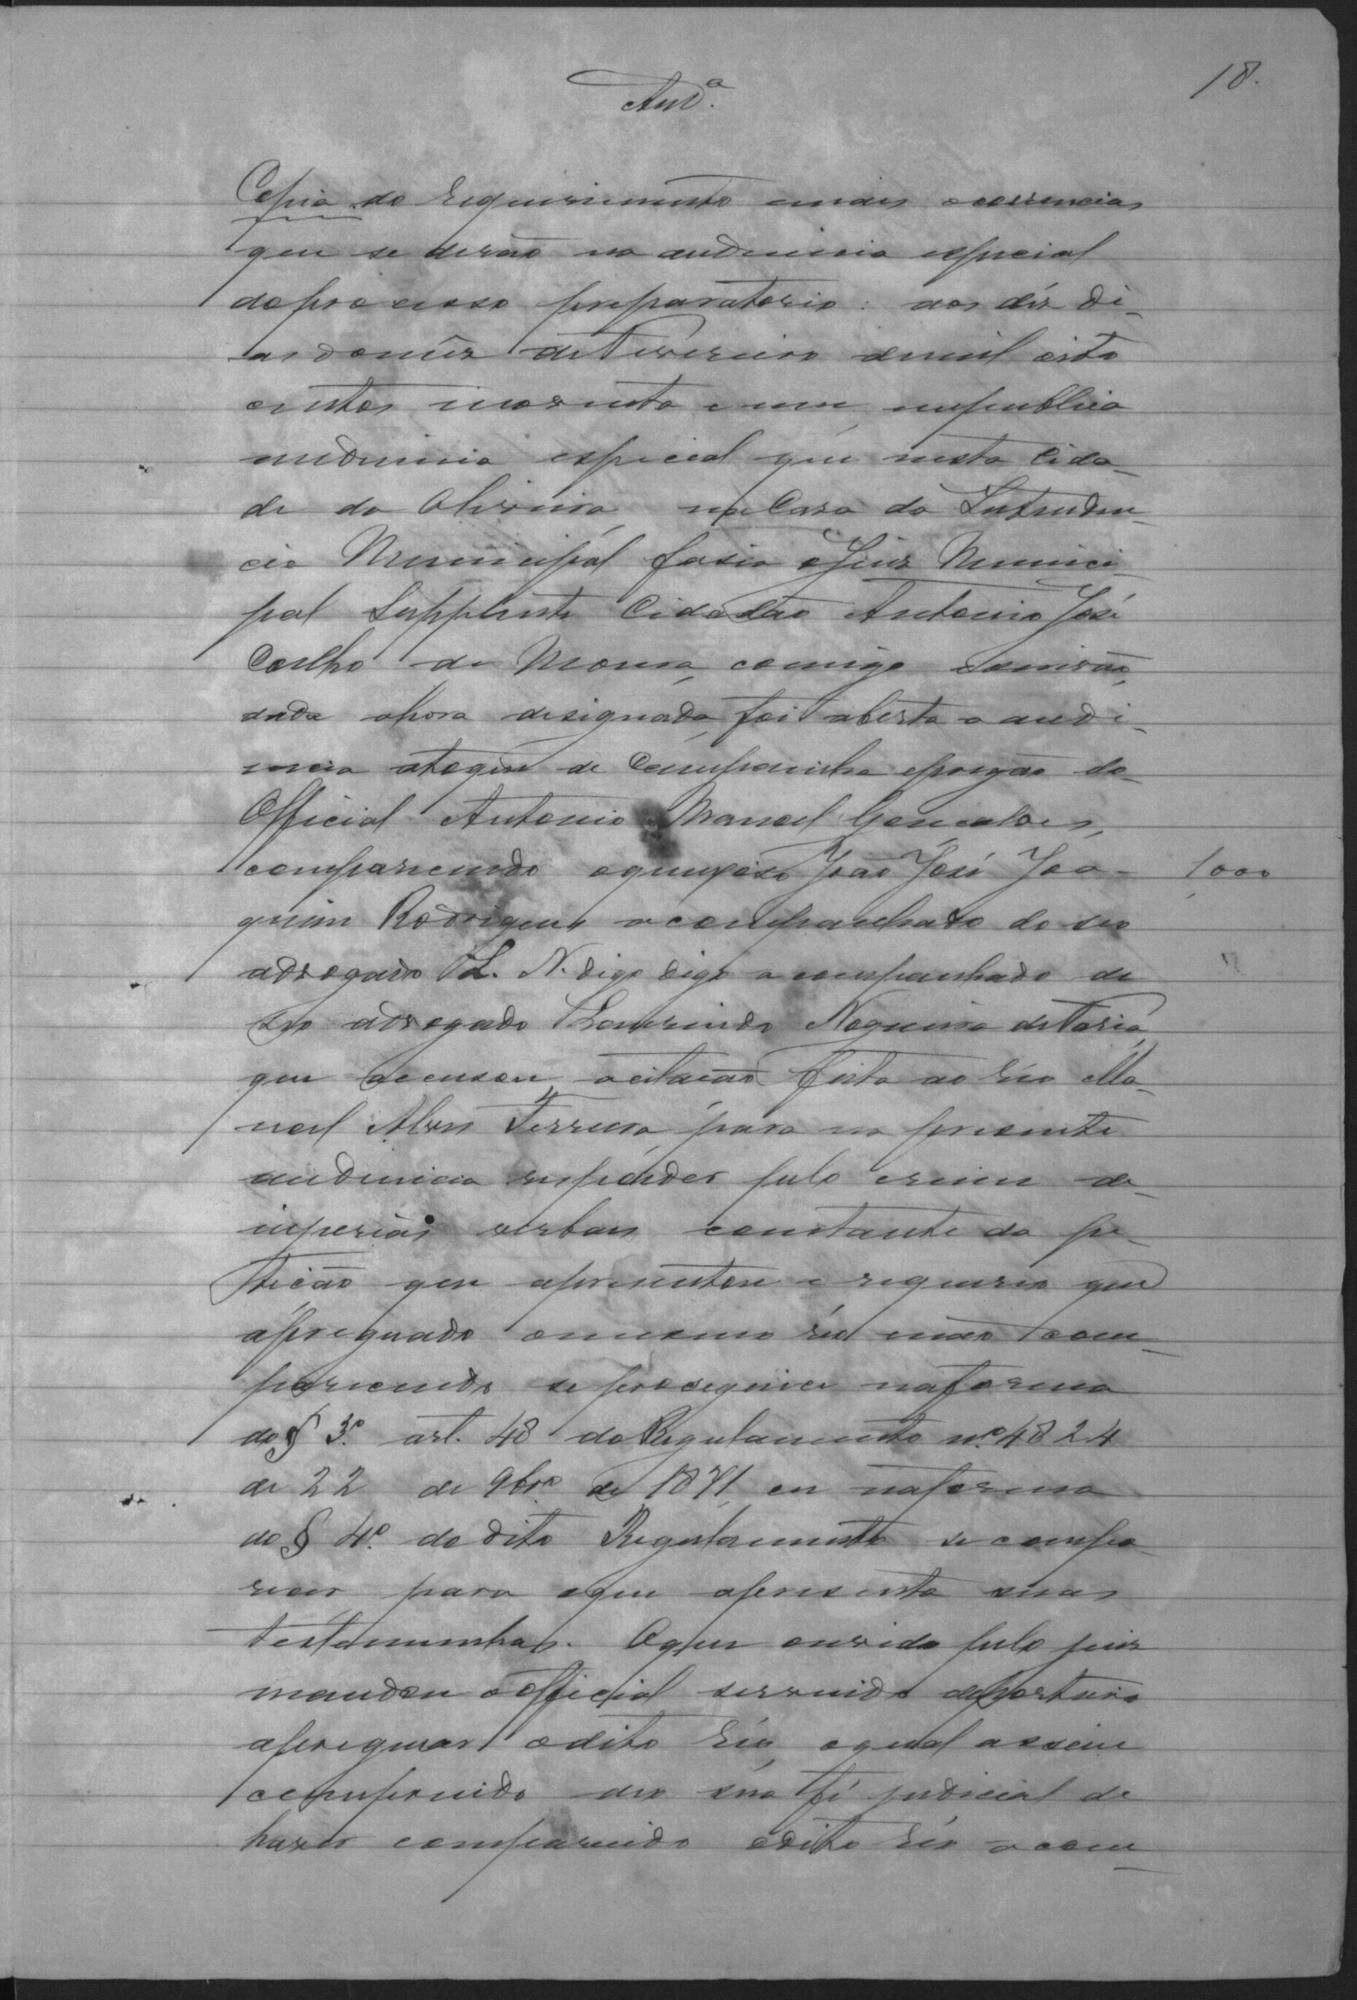 18.
Aud.ª
Copia do requerimento e mais occorrencias
que se derão na audiencia especial
do processo preparatorio: aos dez di-
as do mez de Fevereiro de mil oito
centos noventa e um, em publica
audiencia especial que nesta Cida-
de da Oliveira, na Casa da Intenden-
cia Municipal fasia o Juiz Munici-
pal Supplente Cidadão Antonio José
Coelho de Moura, comigo Escrivão,
sendo a hora designada, foi aberta a audi-
encia a toque de Campainha e pregão do
Official Antonio Manoel Gonçalves,
comparecendo o queixoso João José Joa- 1000
quim Rodrigues acompanhato do seo
advogado L. N. digo digo acompanhado de
seo advogado Lourindo Nogueira de Faria,
que accusou a citação feita ao réo Ma-
noel Alves Ferreira, para na presente
audiencia responder pelo crime de
injurias verbaes constante da pe-
tição que apresentou e requereo que
apregoado o mesmo réo e não com-
parecendo se proseguice na forma
do § 3.º art. 48 do Regulamento n.º 4824
de 22 de 9brº de 1871, ou na forma
do § 4.º do dito Regulamento se compa-
recer para o que apresenta suas
testemunhas. O que ouvido pelo juiz
mandou o Official servindo de porteiro
apregoar o dito réo, o qual assim
comprindo deo sua fé judicial de
haver comparecido o dito réo acom-